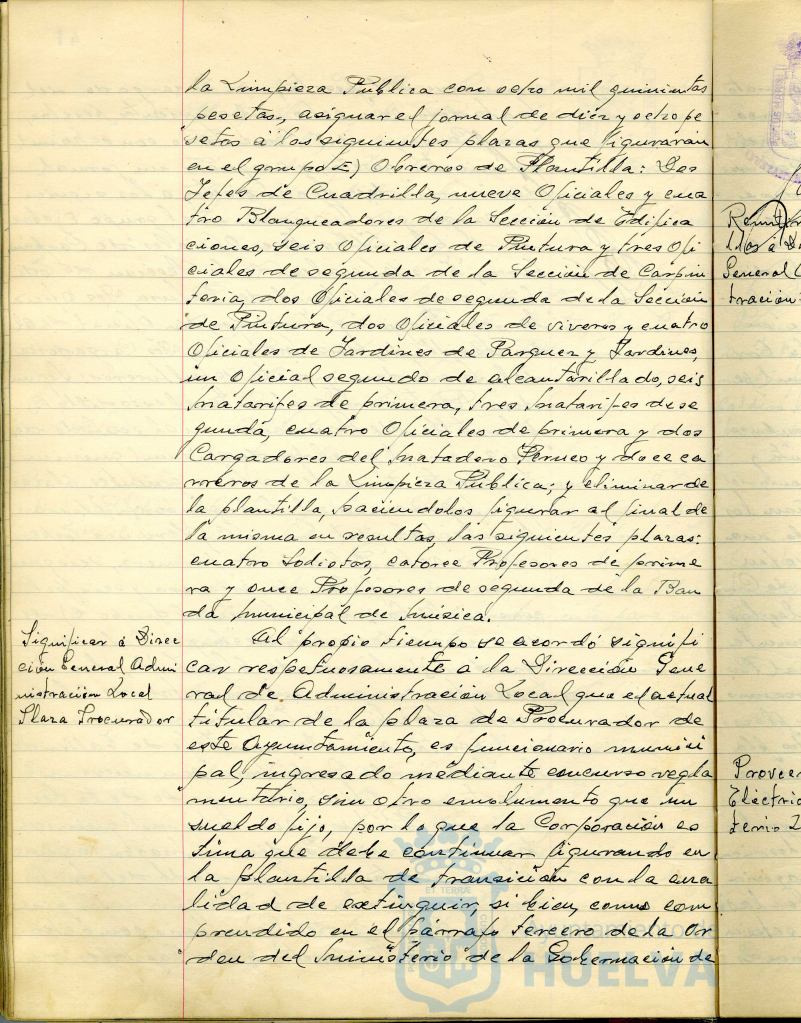 la Limpieza Pública con ocho mil quinientas
pesetas, asignar el jornal de diez y ocho pe
setas á los siguientes plazas que figurarán
en el grupo E) Obreros de Plantilla: Dos
Jefes de Cuadrilla, nueve Oficiales y cua
tro Blanqueadores de la Sección de Edifica
ciones, seis Oficiales de Pintura y tres Ofi
ciales de segunda de la Sección de Carpin
teria, dos Oficiales de segunda de la Sección
de Pintura, dos Oficiales de viveros y cuatro
Oficiales de Jardines de Parques y Jardines,
un Oficial segundo de alcantarillado, seis
Matarifes de primera, tres Matarifes de se
gunda, cuatro Oficiales de primera y dos
Cargadores del Matadero Perneo y doce ca
rreros de la Limpieza Pública; y eliminar de
la plantilla, haciéndolos figurar al final de
la misma en resultas, las siguientes plazas:
cuatro Solistas, catorce Profesores de prime
ra y once Profesores de segunda de la Ban
da Municipal de Música.
Significar á Direc
ción General Admi
nistración Local
Plaza Procurador
Al propio tiempo se acordó signifi
car respetuosamente á la Dirección Gene
ral de Administración Local que el actual
titular de la plaza de Procurador de
este Ayuntamiento, es funcionario munici
pal, ingresado mediante concurso regla
mentario, sin otro emolumento que un
sueldo fijo, por lo que la Corporación es
tima que debe continuar figurando en
la plantilla de transición con la cua
lidad de extinguir, si bien, como com
prendido en el párrafo tercero de la Or
den del Ministerio de la Gobernación de
General
tración
Provee
Eléctric
terio
HUELVA